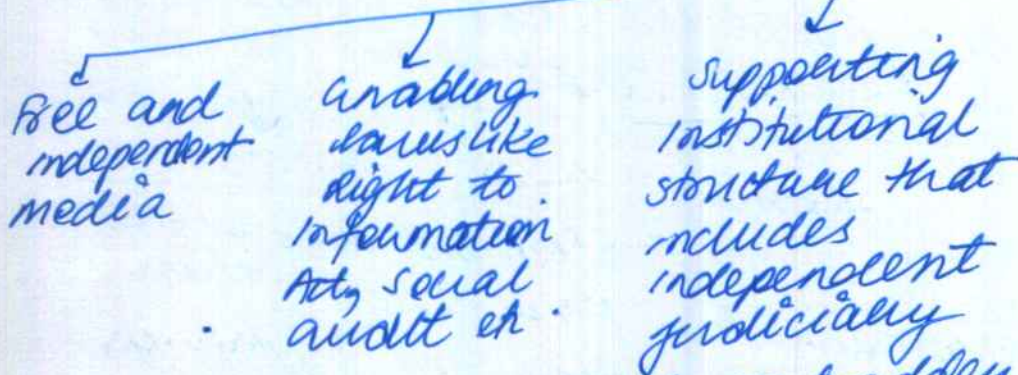 Free and
independent
media
Enabling
laws like
Right to
information
Act, social
audit etc.
Supporting
institutional
structure that
includes
independent
judiciary